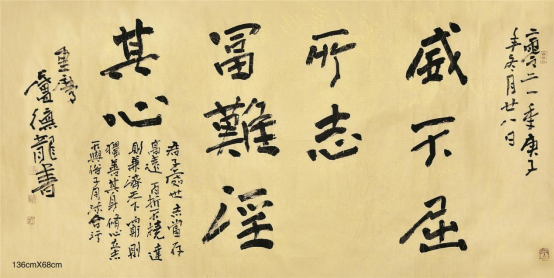 二零二一年庚子
年冬月廿八日
威不屈
所志
富難淫
其心
君子處世志當存
高遠百折不撓達
則兼濟天下窮則
獨善其身傾心立志
不與俗子同流合污
重慶
盧德龍書
136cmX68cm